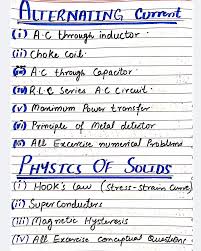 ALTERNATING Current
(i) A.C through inductor.
(ii) Choke Coil.
(iii) A.C through Capacitor.
(iv) R.L.C Series A.C Circuit.
(v) Maximum Power transfer
(vi) Principle of Metal detector
(vii) All Excercise numerical Problems
PHYSICS OF SOLIDS
(i) HOOK's Law (Stress-strain Curve)
(ii) Super Conductors
(iii) Magnetic Hysteresis
(iv) All Excercise Conceptual Questions